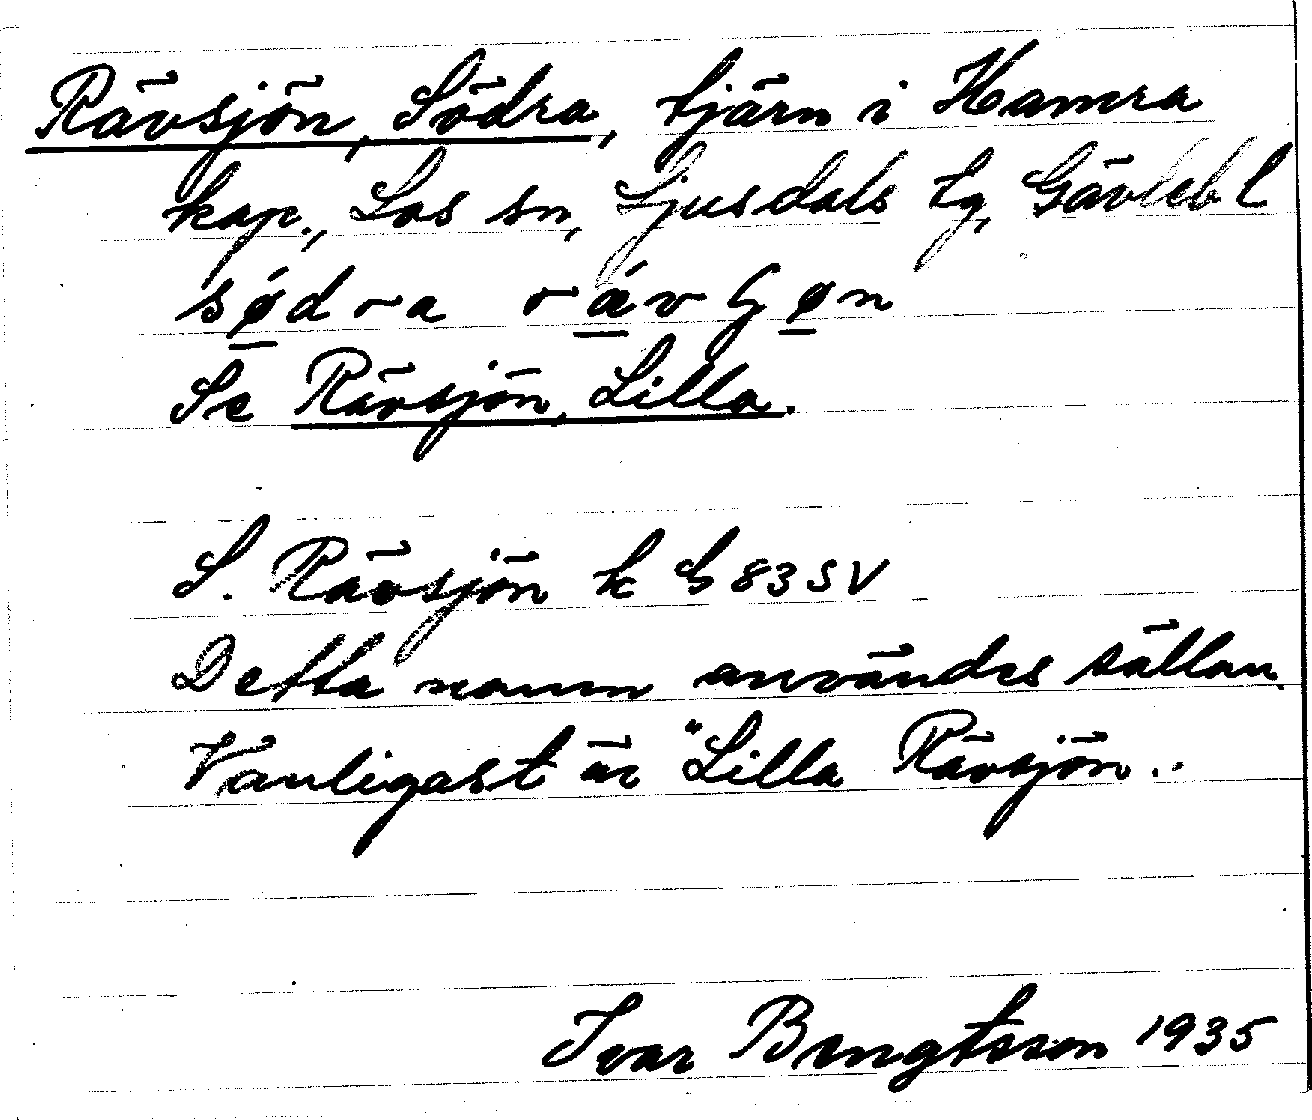 Rävsjön, Södra, tjärn i Hamra
kap., Los sn, Ljusdals tg, Gävleb l
sødra rävʃøn
Se Rävsjön, Lilla.
S. Rävsjön k b 83 SV
Detta namn användes sällan.
Vanligast är "Lilla Rävsjön..
Ivar Bengtsson 1935